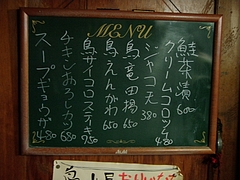 MENU
鮭茶漬 600
クリームコロッケ 480
ジャコ天 380
鳥竜田揚 650
鳥えんがわ 650
鳥サイコロステーキ 750
チキンおろしカツ 680
スープギョウザ 2ヶ 480
Asahi